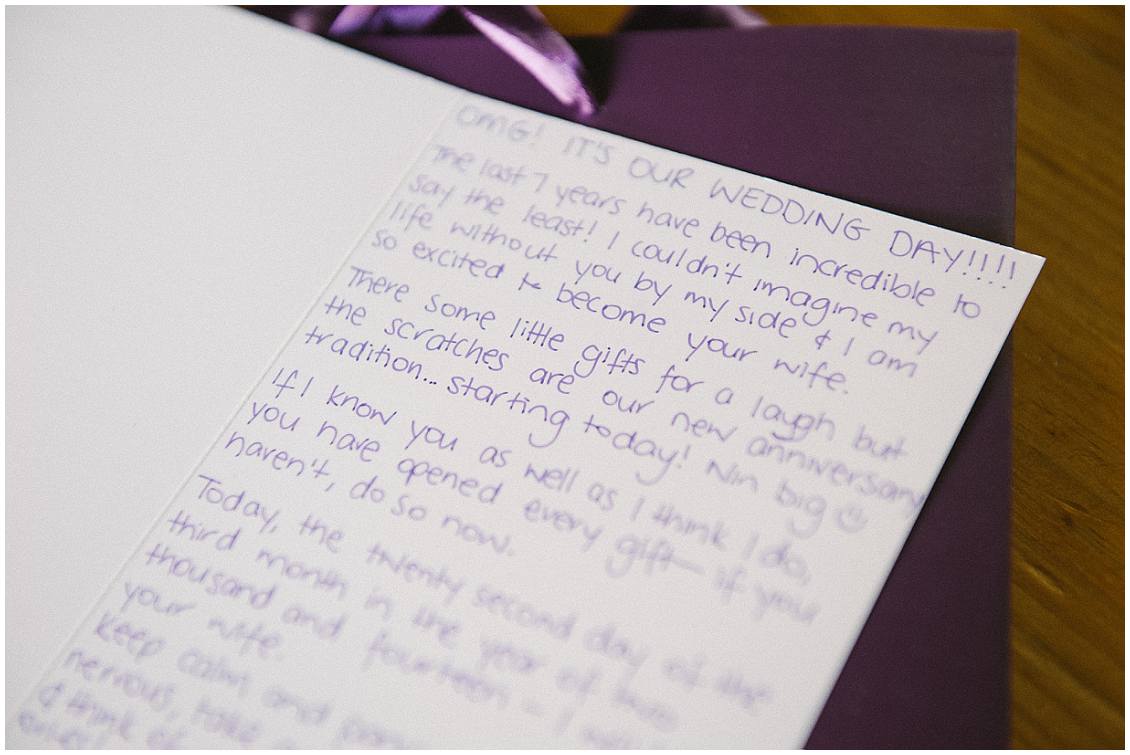 OMG! IT'S OUR WEDDING DAY!!!!
The last 7 years have been incredible to
say the least! I couldn't imagine my
life without you by my side & I am
so excited to become your wife.
There some little gifts for a laugh but
the scratches are our new anniversary
tradition... starting today! Win big ☺
If I know you as well as I think I do,
you have opened every gift – if you
haven't, do so now.
Today, the twenty second day of the
third month in the year of two
thousand and fourteen – I
your wife.
Keep calm and
nervous, take
& think of